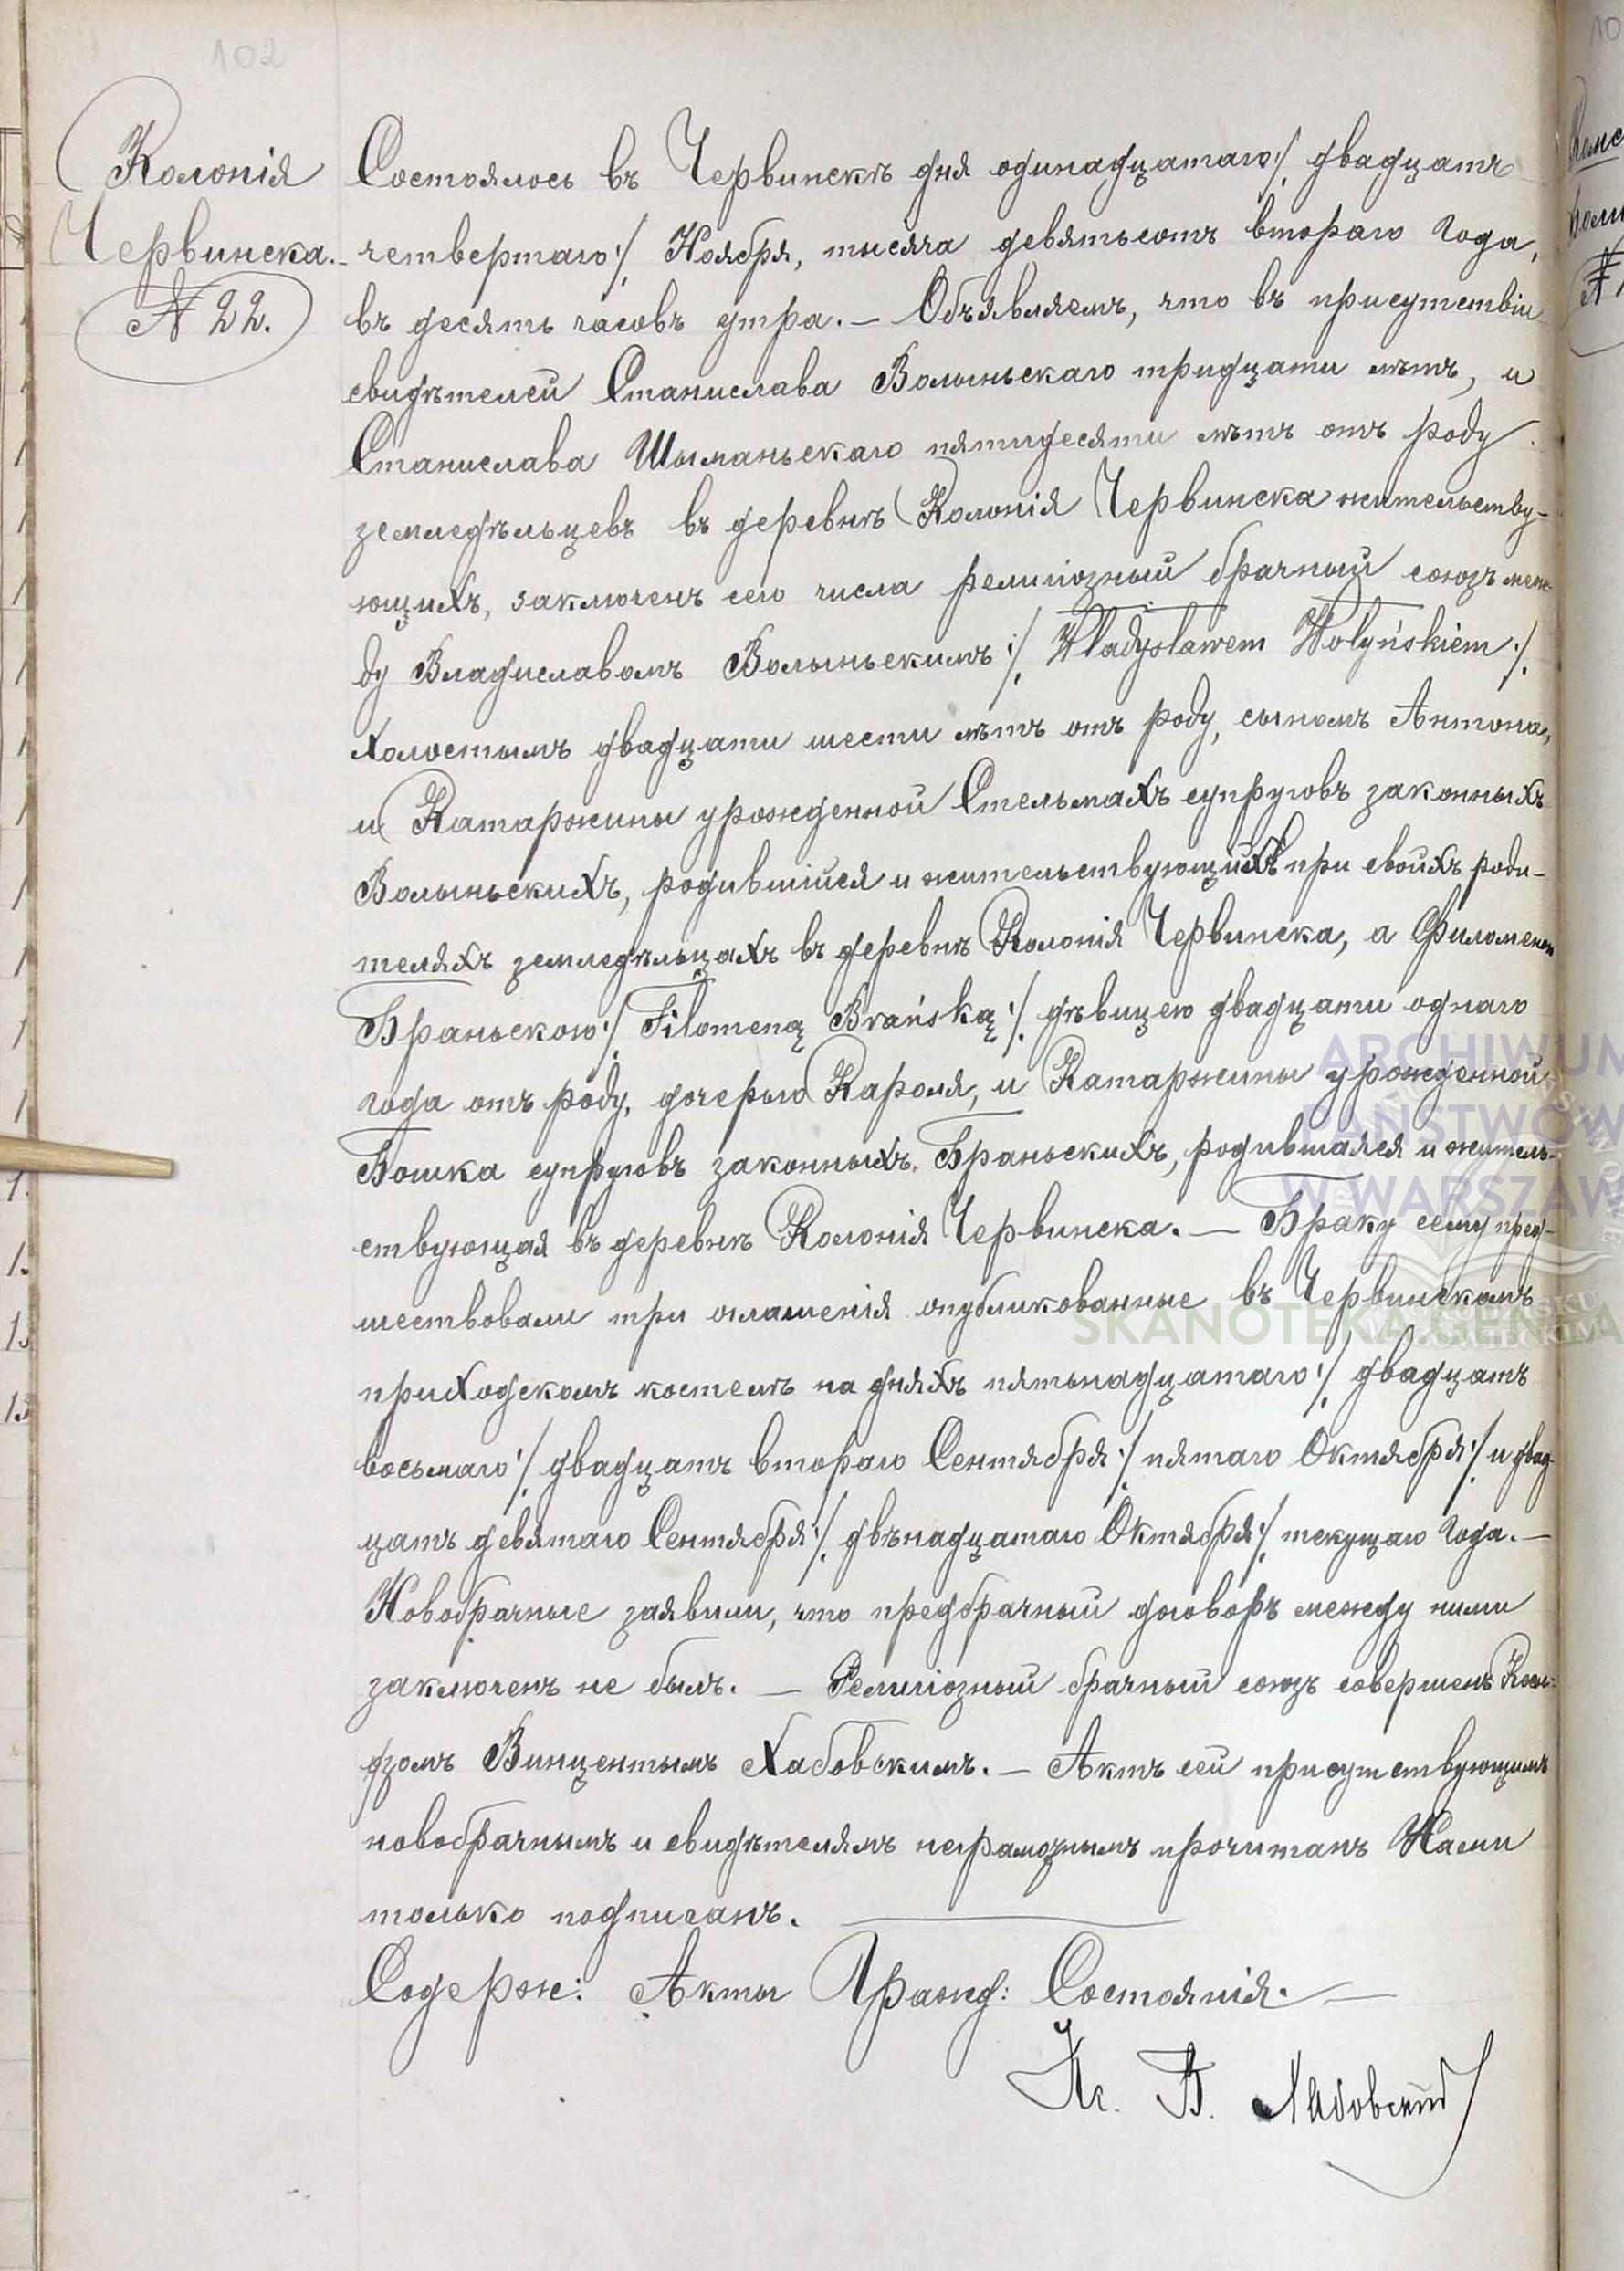 102
Колонія
Червинска.
№ 22.
Состоялось въ Червинскѣ дня одинадцатаго /: двадцать
четвертаго :/ Ноября, тысяча девятьсотъ втораго года,
въ десять часовъ утра. — Объявляемъ, что въ присутствіи
свидѣтелей Станислава Волыньскаго тридцати лѣтъ, и
Станислава Шыманьскаго пятидесяти лѣтъ отъ роду
земледѣльцевъ въ деревнѣ Колонія Червинска жительству-
ющихъ, заключенъ сего числа религіозный брачный союзъ меж-
ду Владиславомъ Волыньскимъ /: Władysławem Wołyńskiem :/
холостымъ двадцати шести лѣтъ отъ роду, сыномъ Антона,
и Катаржины урожденной Стельмахъ супруговъ законныхъ
Волыньскихъ, родившійся и жительствующій при своихъ роди-
теляхъ земледѣльцахъ въ деревнѣ Колонія Червинска, а Филоменою
Браньскою /: Filomeną Brańską :/ дѣвицею двадцати однаго
года отъ роду, дочерью Кароля, и Катаржины урожденной
Бошка супруговъ законныхъ Браньскихъ, родившаяся и житель-
ствующая въ деревнѣ Колонія Червинска. — Браку сему пред-
шествовали три оглашенія опубликованные въ Червинскомъ
приходскомъ костелѣ на дняхъ пятьнадцатаго /: двадцать
восьмаго :/ двадцать втораго Сентября /: пятаго Октября :/ и двад-
цать девятаго Сентября /: двѣнадцатаго Октября :/ текущаго года. —
Новобрачные заявили, что предбрачный договоръ между ними
заключенъ не былъ. — Религіозный брачный союзъ совершенъ Ксен-
дзомъ Винцентымъ Хабовскимъ. — Актъ сей присутствующимъ
новобрачнымъ и свидѣтелямъ неграмотнымъ прочитанъ Нами
только подписанъ.
Содерж: Акты Гражд: Состоянія. —
Кс. В. Хабовскій
ARCHIWUM
PAŃSTWOW
W WARSZAW
SKANOTEKA.GENEA